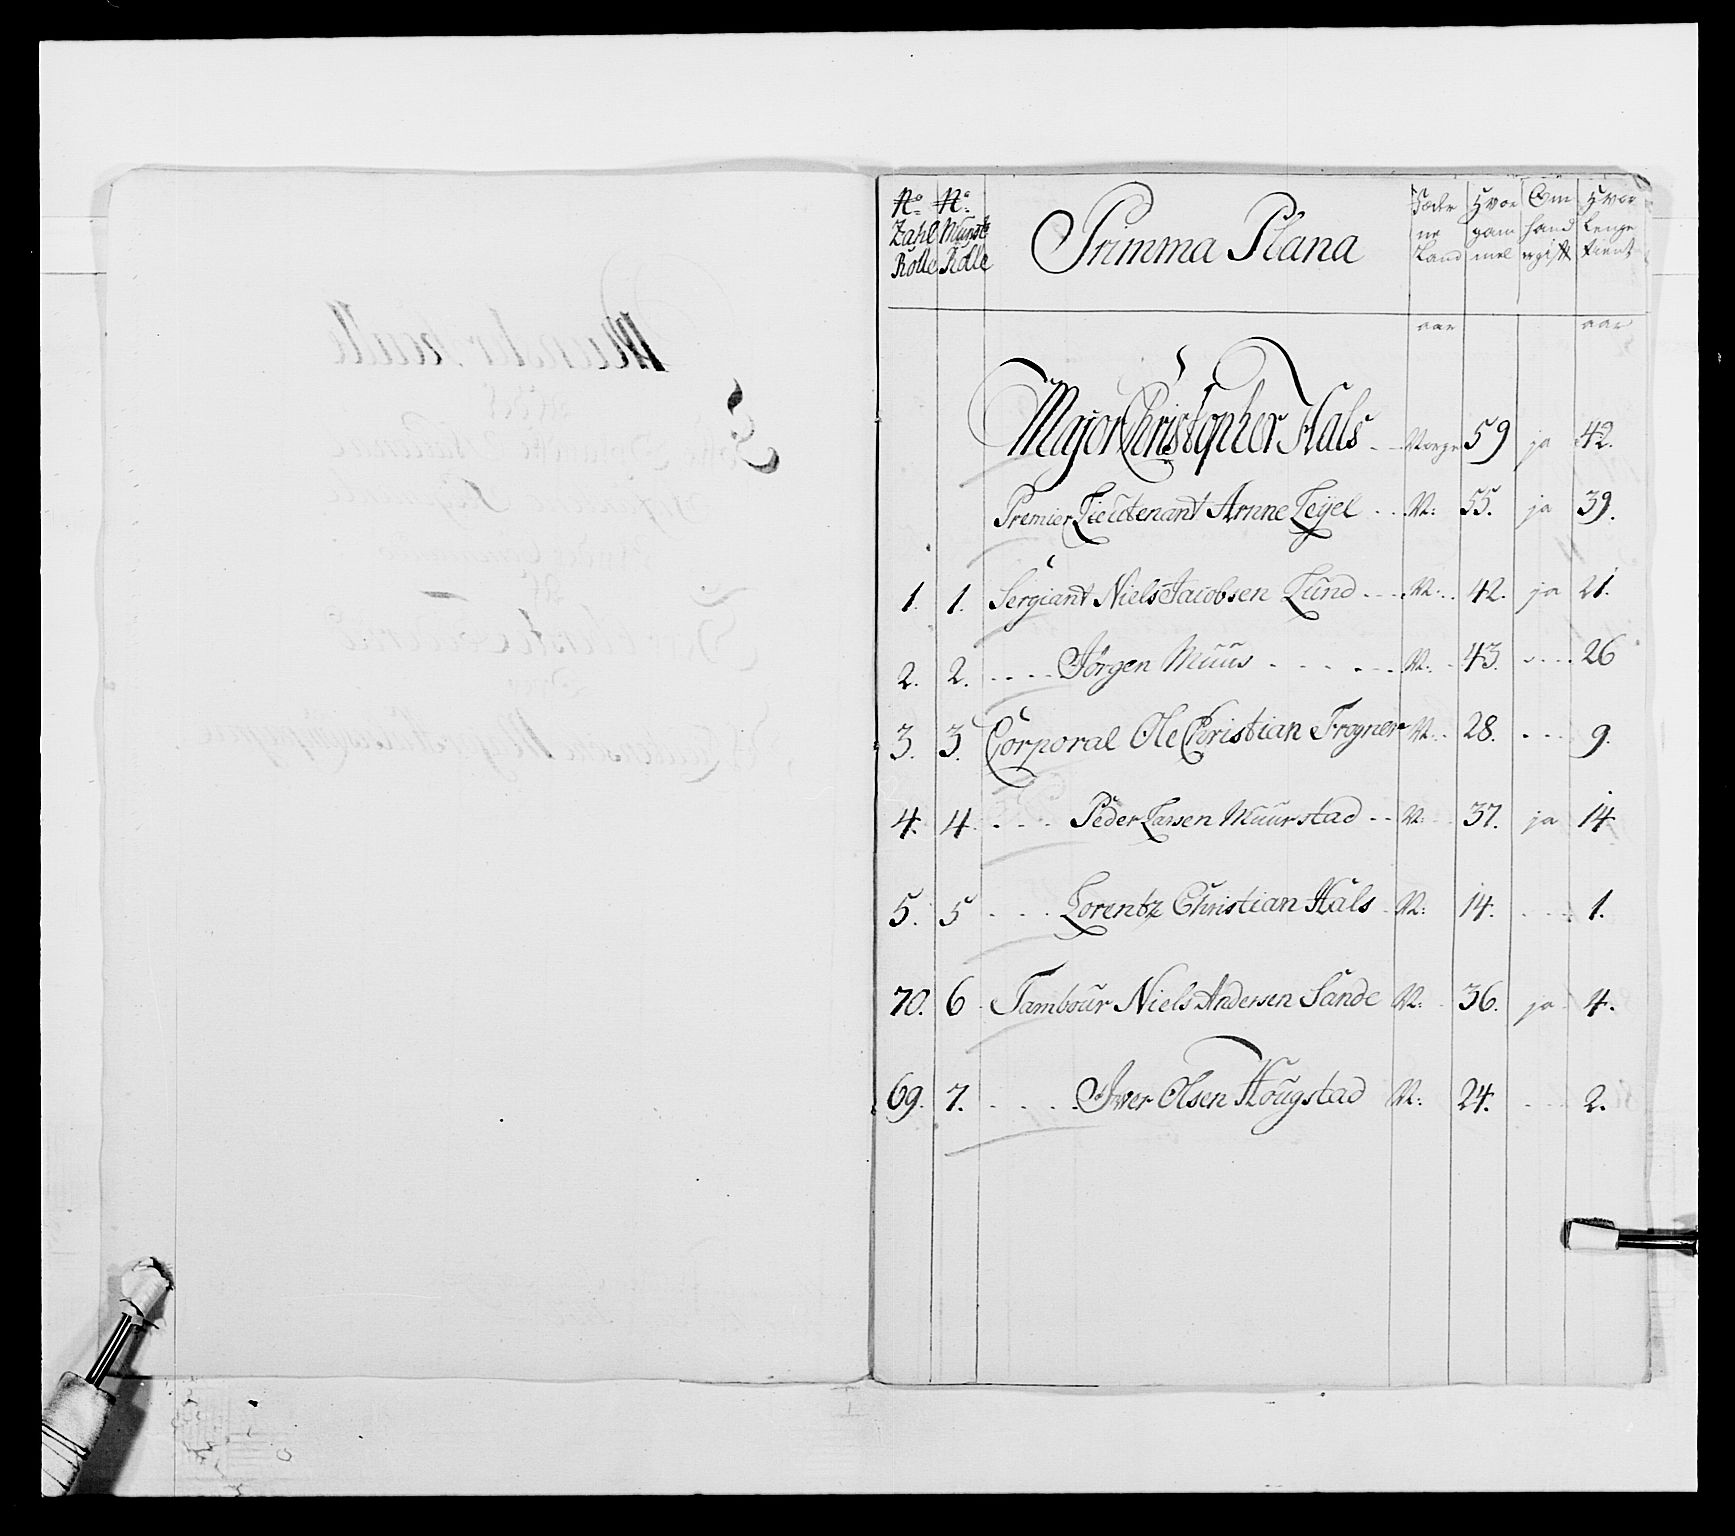 No. No. Primma Plana Fæderne Land Hvor gammel Om hand ergift Hvor lenge tient
Zahl Rolle Munst Rolle
aar aar
Major Christopher Hals Norge 59 ja 42.
Premier Lieutenant Arnne Legel N: 55. ja 39.
1. 1. Sergiant Niels Jacobsen Lund N: 42. ja 21.
2. 2. Jörgen Muus N: 43. 26
3. 3. Corporal Ole Christian Frogner N: 28. 9.
4. 4 Peder Larsen Muurstad N: 37. ja 14
5. 5 Lorentz Christian Hals N: 14. 1.
70. 6 Tambour Niels Andersen Sande N: 36. ja 4.
69. 7. Iver Olsen Hougstad N: 24. 2.